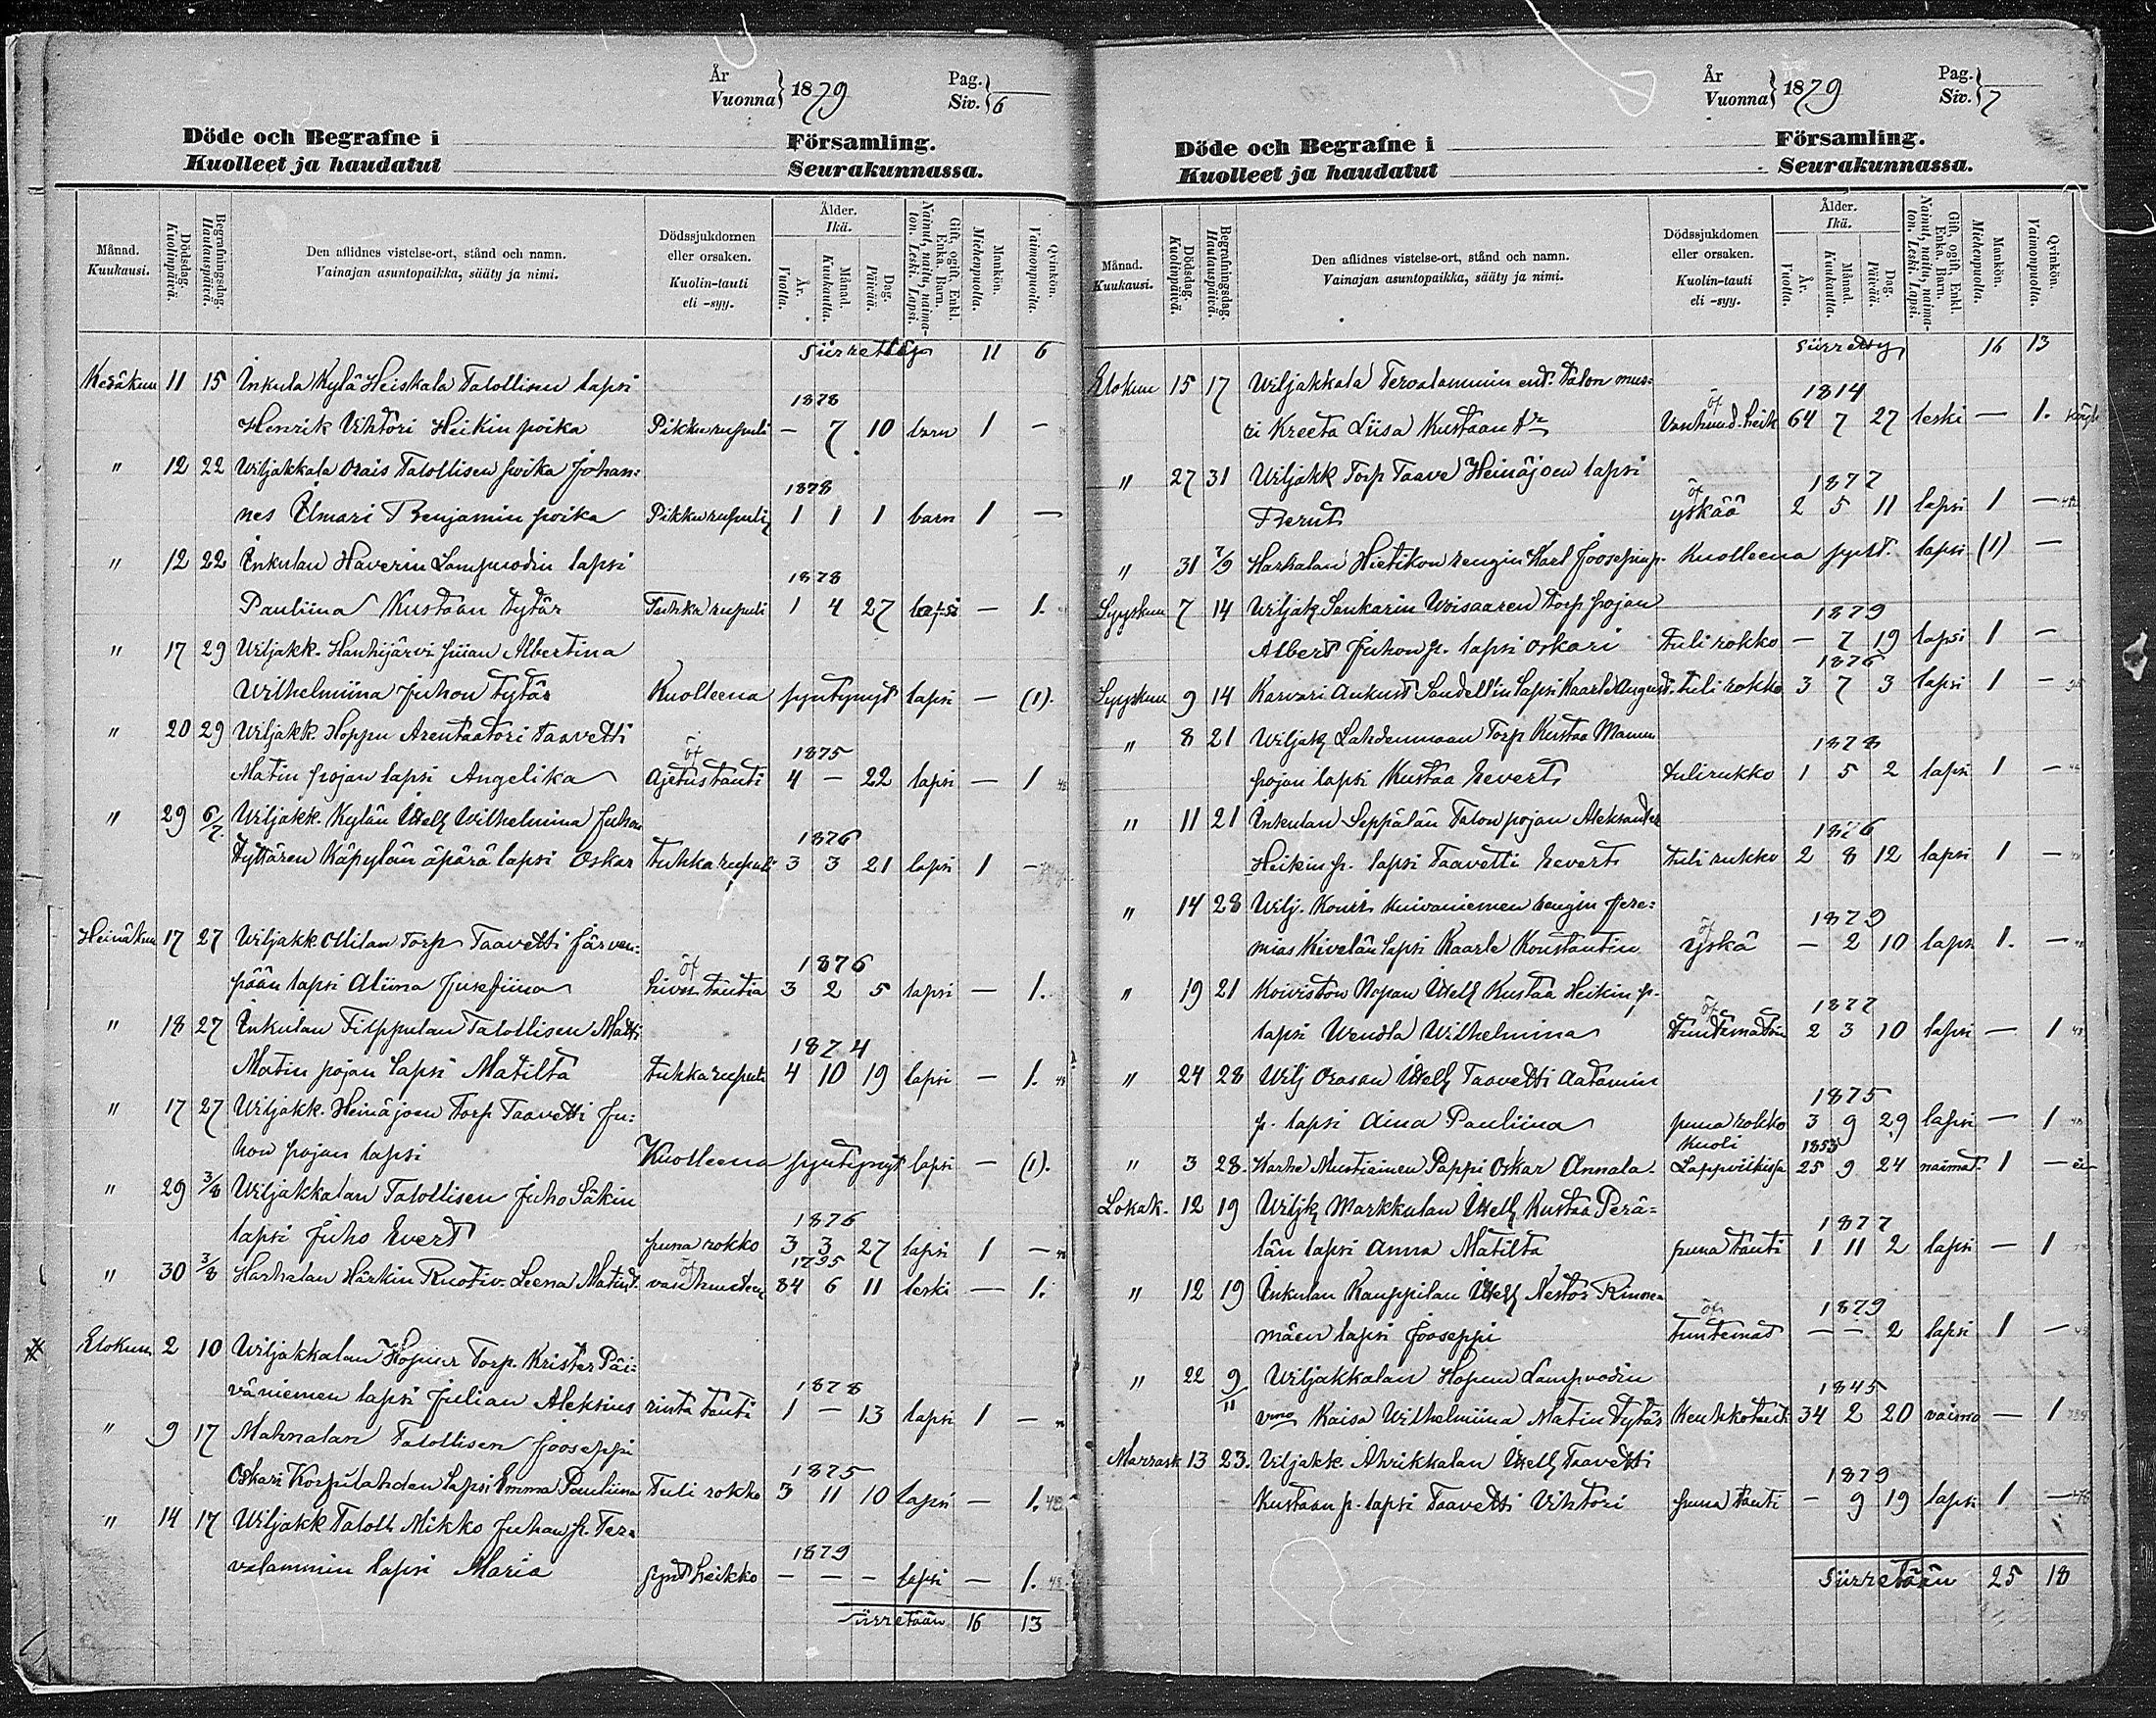 År
Vuonna } 1879
Pag.
Siv. } 6
Döde och Begrafne i Församling.
Kuolleet ja haudatut Seurakunnassa.
Månad. Kuukausi.
Dödsdag. Kuolinpäivä.
Begrafningsdag. Hautauspäivä.
Den aflidnes vistelse-ort, stånd och namn.
Vainajan asuntopaikka, sääty ja nimi.
Dödssjukdomen eller orsaken.
Kuolin-tauti eli -syy.
Ålder. Ikä.
År. Vuotta.
Månad. Kuukautta.
Dag. Päivää.
Gift, ogift, Enkl. Enka. Barn.
Nainut, naitu, naimaton. Leski. Lapsi.
Mankön. Miehenpuolta.
Qvinkön. Vaimonpuolta.
Siirretty 11 6
Kesäkuu 11 15 Inkula Kylä Heiskala Talollisen lapsi
1878
Henrik Vihtori Heikin poika Pikku rupuli — 7 10 barn 1 —
" 12 22 Wiljakkala Orais Talollisen poika Johan:
1878
nes Ilmari Benjamin poika Pikku rupuli 1 1 1 barn 1 —
" 12 22 Inkulan Haverin Lampuodin lapsi
1878
Pauliina Kustaan tytär Tuhka rupuli 1 4 27 lapsi — 1.
" 17 29 Wiljakk. Hanhijärvi piian Albertina
Wilhelmiina Juhon tytär Kuolleena syntynyt lapsi — (1).
" 20 29 Wiljakk. Hoppu Arentaatori Taavetti
öf 1875
Matin pojan lapsi Angelika Ajetustauti 4 — 22 lapsi — 1
" 29 6/7. Wiljakk. Kylän Itsell Wilhelmina Juhon
1876
tyttären Käpylän äpärä lapsi Oskar tuhka rupuli 3 3 21 lapsi 1 —
Heinäkuu 17 27 Wiljakk. Ollilan Torp Taavetti Järven:
öf 1876
pään lapsi Aliina Josefiina 3 2 5 lapsi — 1.
" 18 27 Inkulan Filppulan Talollisen Matti
1874
Matin pojan lapsi Matilta tuhka rupuli 4 10 19 lapsi — 1.
" 17 27 Wiljakk. Heinäjoen Torp Taavetti Ju:
hon pojan lapsi Kuolleena syntynyt lapsi — (1).
" 29 3/8 Wiljakkalan Talollisen Juho Säkin
1876
lapsi Juho Evert puna rokko 3 3 27 lapsi 1 —
öf 1795
" 30 3/8 Harhalan Härkin Ruotiv. Leena Matint. vanhuuden 84 6 11 leski — 1.
Elokuu 2 10 Wiljakkalan Hopun Torp. Krister Päi:
1878
väniemen lapsi Julian Aleksius rinta tauti 1 — 13 lapsi 1 —
" 9 17 Mahnalan Talollisen Jooseppi
1875
Oskari Korpilahden lapsi Emma Pauliina Tuli rokko 3 11 10 lapsi — 1.
" 14 17 Wiljakk Taloll. Mikko Juhan p. Ter=
1879
valammin lapsi Maria synt heikko — — — lapsi — 1.
Siirretään 16 13
År
Vuonna } 1879
Pag.
Siv. } 7
Döde och Begrafne i Församling.
Kuolleet ja haudatut Seurakunnassa.
Månad. Kuukausi.
Dödsdag. Kuolinpäivä.
Begrafningsdag. Hautauspäivä.
Den aflidnes vistelse-ort, stånd och namn.
Vainajan asuntopaikka, sääty ja nimi.
Dödssjukdomen eller orsaken.
Kuolin-tauti eli -syy.
Ålder. Ikä.
År. Vuotta.
Månad. Kuukautta.
Dag. Päivää.
Gift, ogift, Enkl. Enka. Barn.
Nainut, naitu, naimaton. Leski. Lapsi.
Mankön. Miehenpuolta.
Qvinkön. Vaimonpuolta.
Siirretty 16 13
Elokuu 15 17 Wiljakkala Tervalammin ent. Talon muo:
öf 1814
ri Kreeta Liisa Kustaan tr 64 7 27 leski — 1.
" 27 31 Wiljakk Torp Taave Heinäjoen lapsi
öf 1877
Bernt yskää 2 5 11 lapsi 1 —
" 31 7/9 Harhalan Hietikon rengin Karl Joosepin p. Kuolleena synt. lapsi (1) —
Syyskuu 7 14 Wiljakk Sankarin Woisaaren Torp pojan
1879
Albert Juhon p. lapsi Oskari tuli rokko — 7 19 lapsi 1 —
1876
Syyskuu 9 14 Karvari Aukust Sandell'in lapsi Kaarle August. tuli rokko 3 7 3 lapsi 1 —
" 8 21 Wiljakk Lahdenmaan Torp Kustaa Manun
1878
pojan lapsi Kustaa Evert tulirokko 1 5 2 lapsi 1 —
" 11 21 Inkulan Seppälän Talon pojan Aleksander
1876
Heikin p. lapsi Taavetti Evert tuli rukko 2 8 12 lapsi 1 —
" 14 28 Wilj. Kouri Kuivaniemen rengin Jere:
öf 1879
mias Kivelän lapsi Kaarle Konstantin yskä — 2 10 lapsi 1. —
" 19 21 Koiviston Nopan Itsell Kustaa Heikin p.
öf 1877
lapsi Wendla Wilhelmina tuntematoin 2 3 10 lapsi — 1
" 24 28 Wilj Orasan Itsell Taavetti Aatamin
1875
p. lapsi Aina Pauliina puna rokko 3 9 29 lapsi — 1
kuoli 1853
" 3 28. Karhe Mustiainen Pappi Oskar Annala. Lappviikissa 25 9 24 naimat. 1 —
Lokak. 12 19 Wiljk Markkulan Itsell Kustaa Perä=
1877
län lapsi Anna Matilta puna tauti 1 11 2 lapsi — 1
" 12 19 Inkulan Kauppilan Itsell Nestor Rinne=
öf 1879
mäen lapsi Jooseppi tuntemat — — 2 lapsi 1 —
" 22 9/11 Wiljakkalan Hopun Lampuodin
1845
vmo Kaisa Wilhelmiina Matin tytär Keuhkotauti 34 2 20 vaimo — 1
Marrask 13 23. Wiljakk. Ahrikkalan Itsell Taavetti
1879
Kustaan p. lapsi Taavetti Vihtori puna tauti — 9 19 lapsi 1 —
Siirretään 25 18